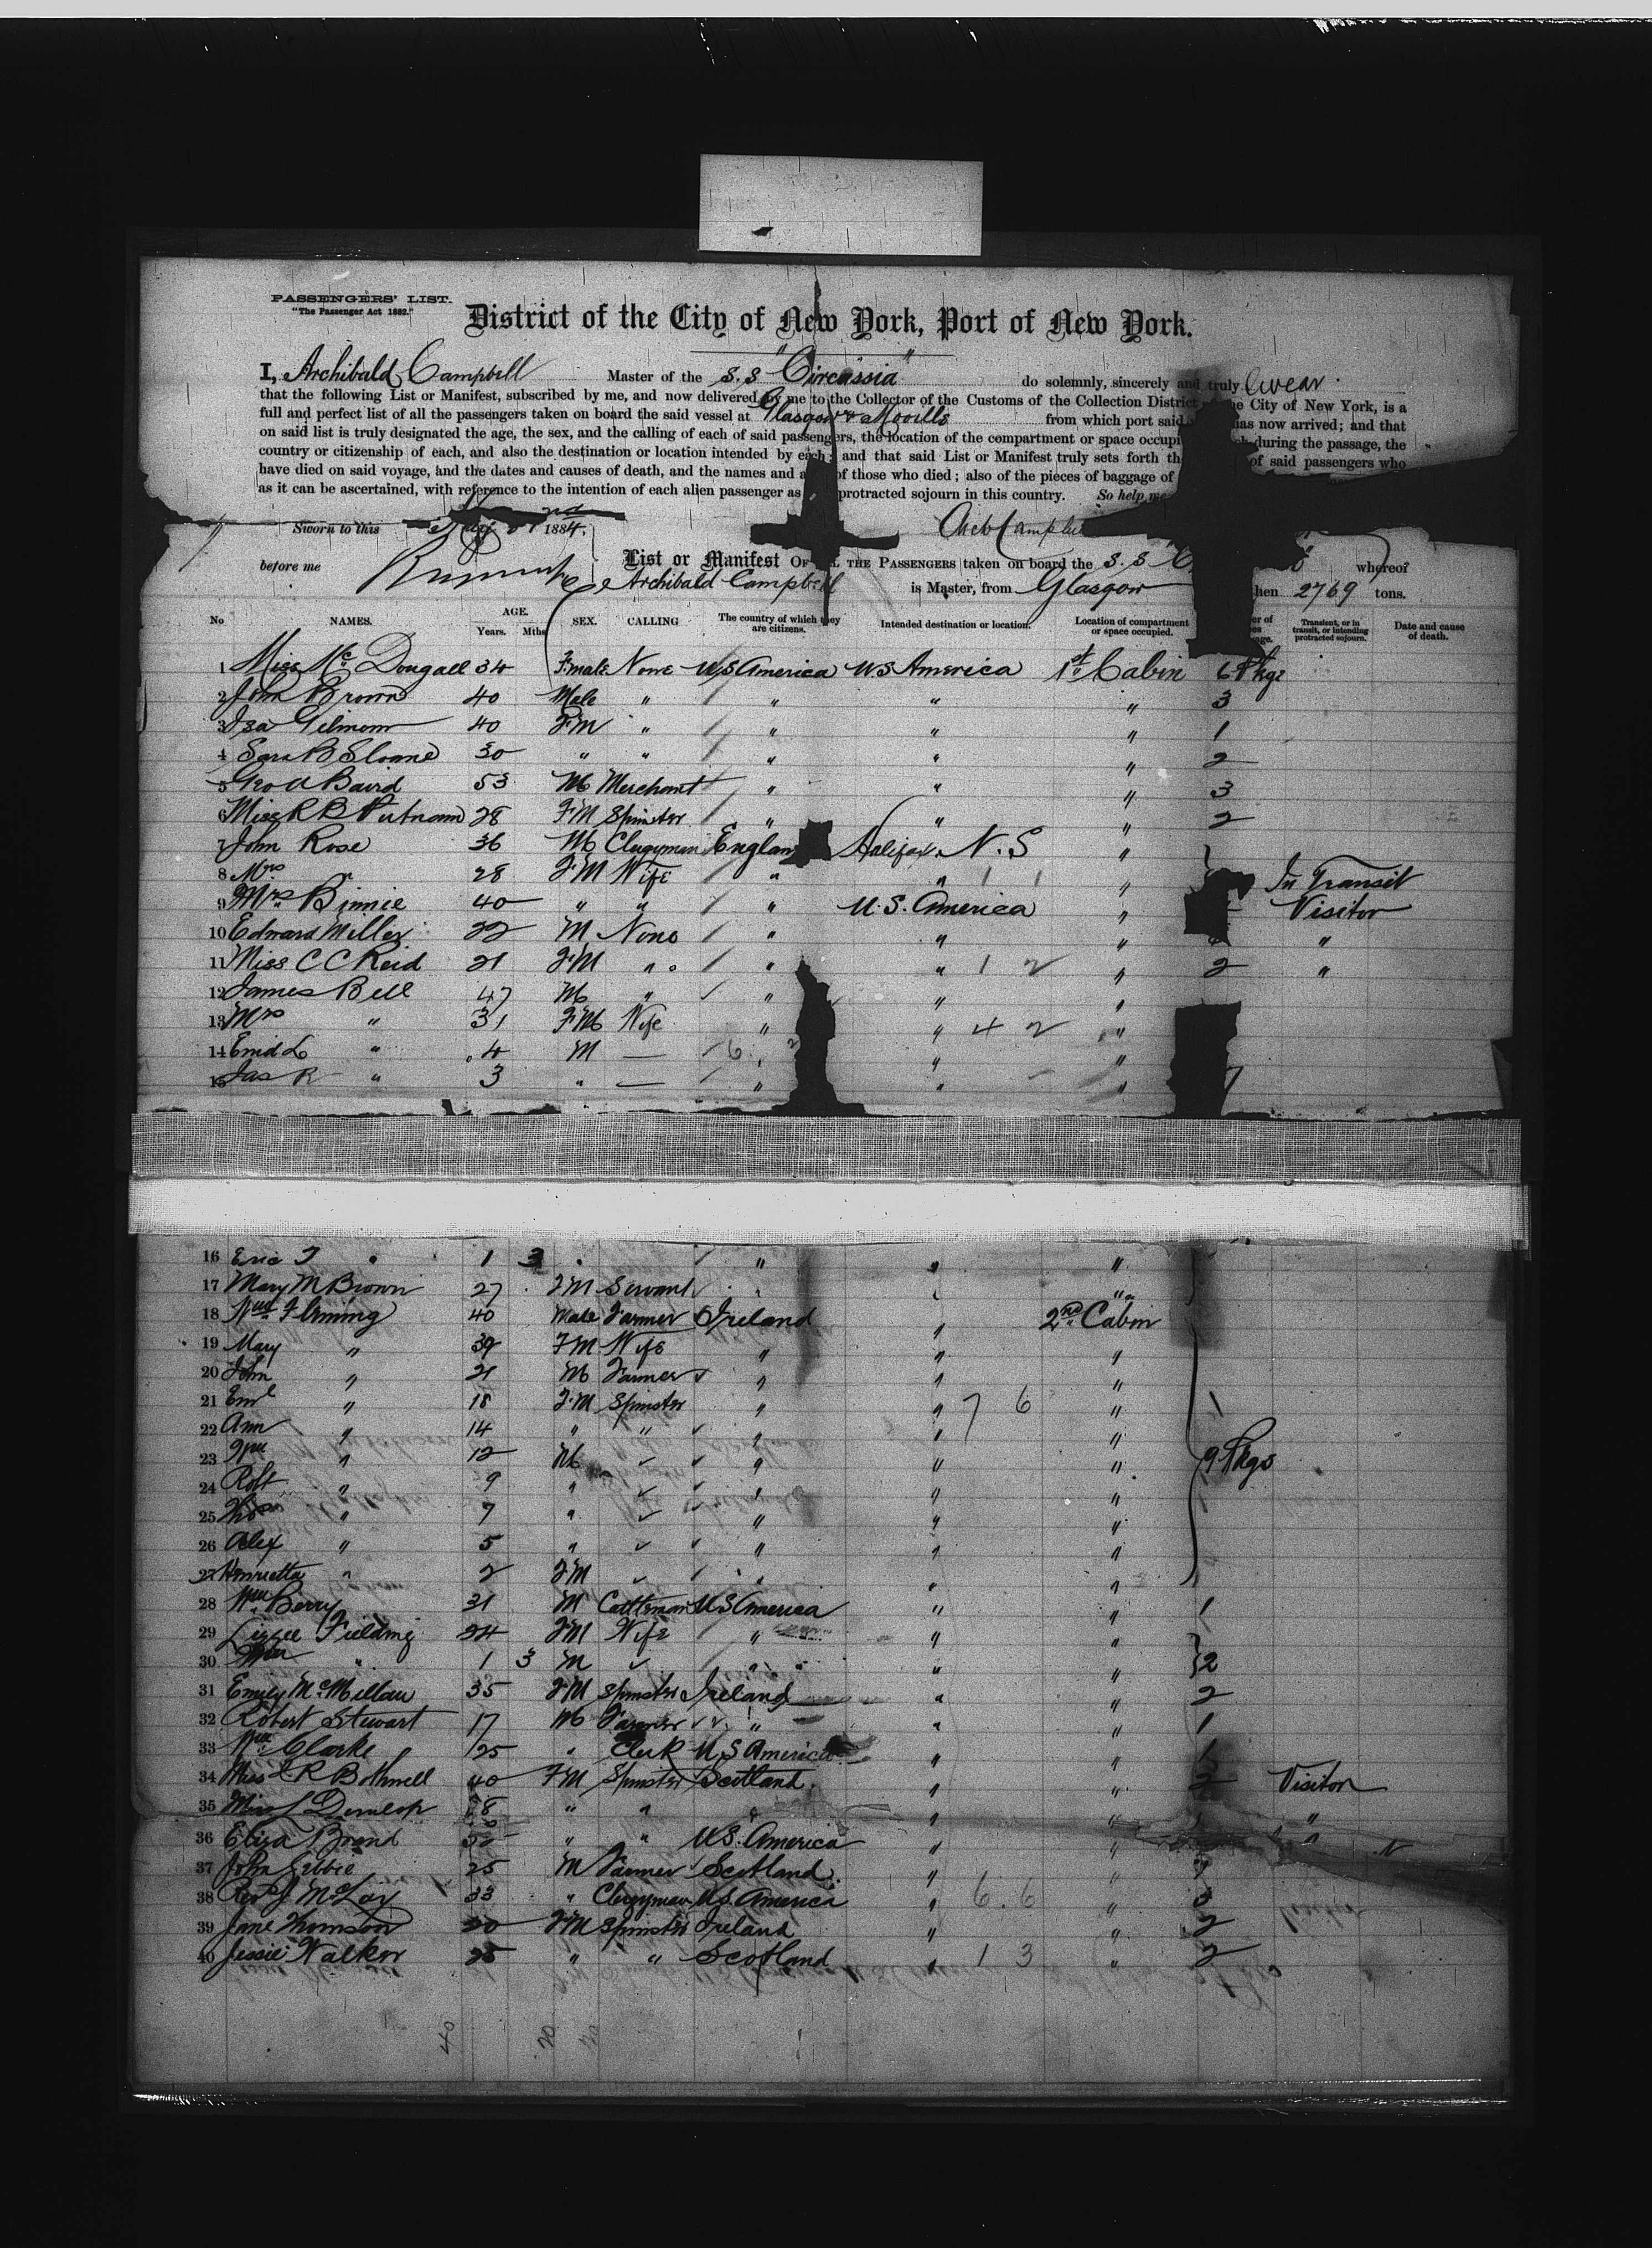 PASSENGERS' LIST.
"The Passenger Act 1882."
District of the City of New York, Port of New York.
I, Archibald Campbell Master of the s.s "Circassia" do solemnly, sincerely and truly swear
that the following List or Manifest, subscribed by me, and now delivered by me to the Collector of the Customs of the Collection District the City of New York, is a
full and perfect list of all the passengers taken on board the said vessel at Glasgow & Moville from which port said has now arrived; and that
on said list is truly designated the age, the sex, and the calling of each of said passengers, the location of the compartment or space during the passage, the
country or citizenship of each, and also the destination or location intended by each; and that said List or Manifest truly sets forth of said passengers who
have died on said voyage, and the dates and causes of death, and the names and of those who died; also of the pieces of baggage of
as it can be ascertained, with reference to the intention of each alien passenger as protracted sojourn in this country. So help me
Sworn to this 1884. Arch Campbell
before me
List or Manifest OF THE PASSENGERS taken on board the S.S whereof
Archibald Campbell is Master, from Glasgow 2769 tons.
No NAMES. AGE. Years. Mths SEX. CALLING The country of which they are citizens. Intended destination or location. Location of compartment or space occupied. Transient, or in transit, or intending protracted sojourn. Date and cause of death.
1 Miss McDougall 34 Female None U.S America U.S America 1st Cabin 6 Pkgs
2 John Brown 40 Male " " " " 3
3 Isa Gilmour 40 FM " " " " 1
4 Sara B Sloane 30 " " " " " 2
5 Geo A Baird 53 M Merchant " " " 3
6 Miss R B Putnam 28 FM Spinster " " " 2
7 John Rose 36 M Clergyman England Halifax N.S "
8 Mrs " 28 FM Wife " " 1 1 " In Transit
9 Mrs Binnie 40 " " " U.S. America " Visitor
10 Edward Miller 22 M None " " " "
11 Miss C C Reid 21 FM " " " 1 2 " 2 "
12 James Bell 47 M " " " "
13 Mrs " 31 FM Wife " " 4 2 "
14 Enid L " 4 M — 6 " " "
15 Jas R " 3 " — " " " 7
16 Eric T " 1 3 " " " "
17 Mary M Brown 27 FM Servant " " "
18 Wm Fleming 40 Male Farmer Ireland " 2nd Cabin
19 Mary " 39 FM Wife " " "
20 John " 21 M Farmer " " "
21 " 18 FM Spinster " " 7 6 "
22 Ann " 14 " " " " "
23 Wm " 12 M " " " 9 Pkgs
24 Robt " 9 " " " "
25 Thos " 7 " " " "
26 Alex " 5 " " " "
27 Henrietta " 2 FM " " "
28 Wm Berry 31 M Cattleman U S America " " 1
29 Lizzie Fielding 24 FM Wife " " "
30 Wm " 1 3 M " " " 2
31 Emily McMillan 35 FM Spinster Ireland " " 2
32 Robert Stewart 17 M Farmer " " " 1
33 Wm Clarke 25 " Clerk U S America " " 1
34 Miss J R Bothwell 40 FM Spinster Scotland " " 2 Visitor
35 Miss L Dunlop " " " " " "
36 Eliza Brand " " U.S. America " " "
37 John Gebbie 25 M Farmer Scotland " " 1
38 Revd J McLoy 33 " Clergyman U.S. America " 6 6 " 3
39 Jane Thomson 20 FM Spinster Ireland " " 2
40 Jessie Walker 25 " " Scotland " 1 3 " 2
40 20 20